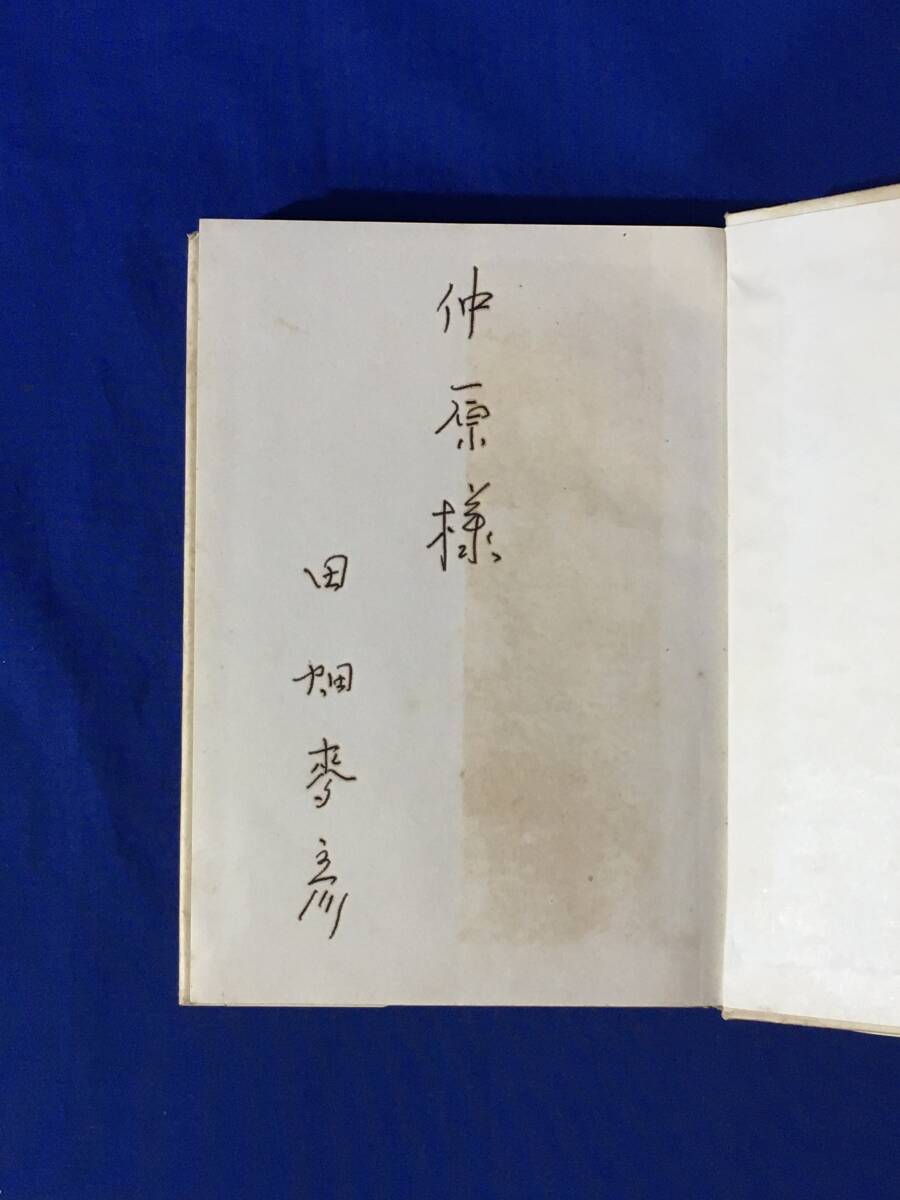 仲原様
田畑麦彦